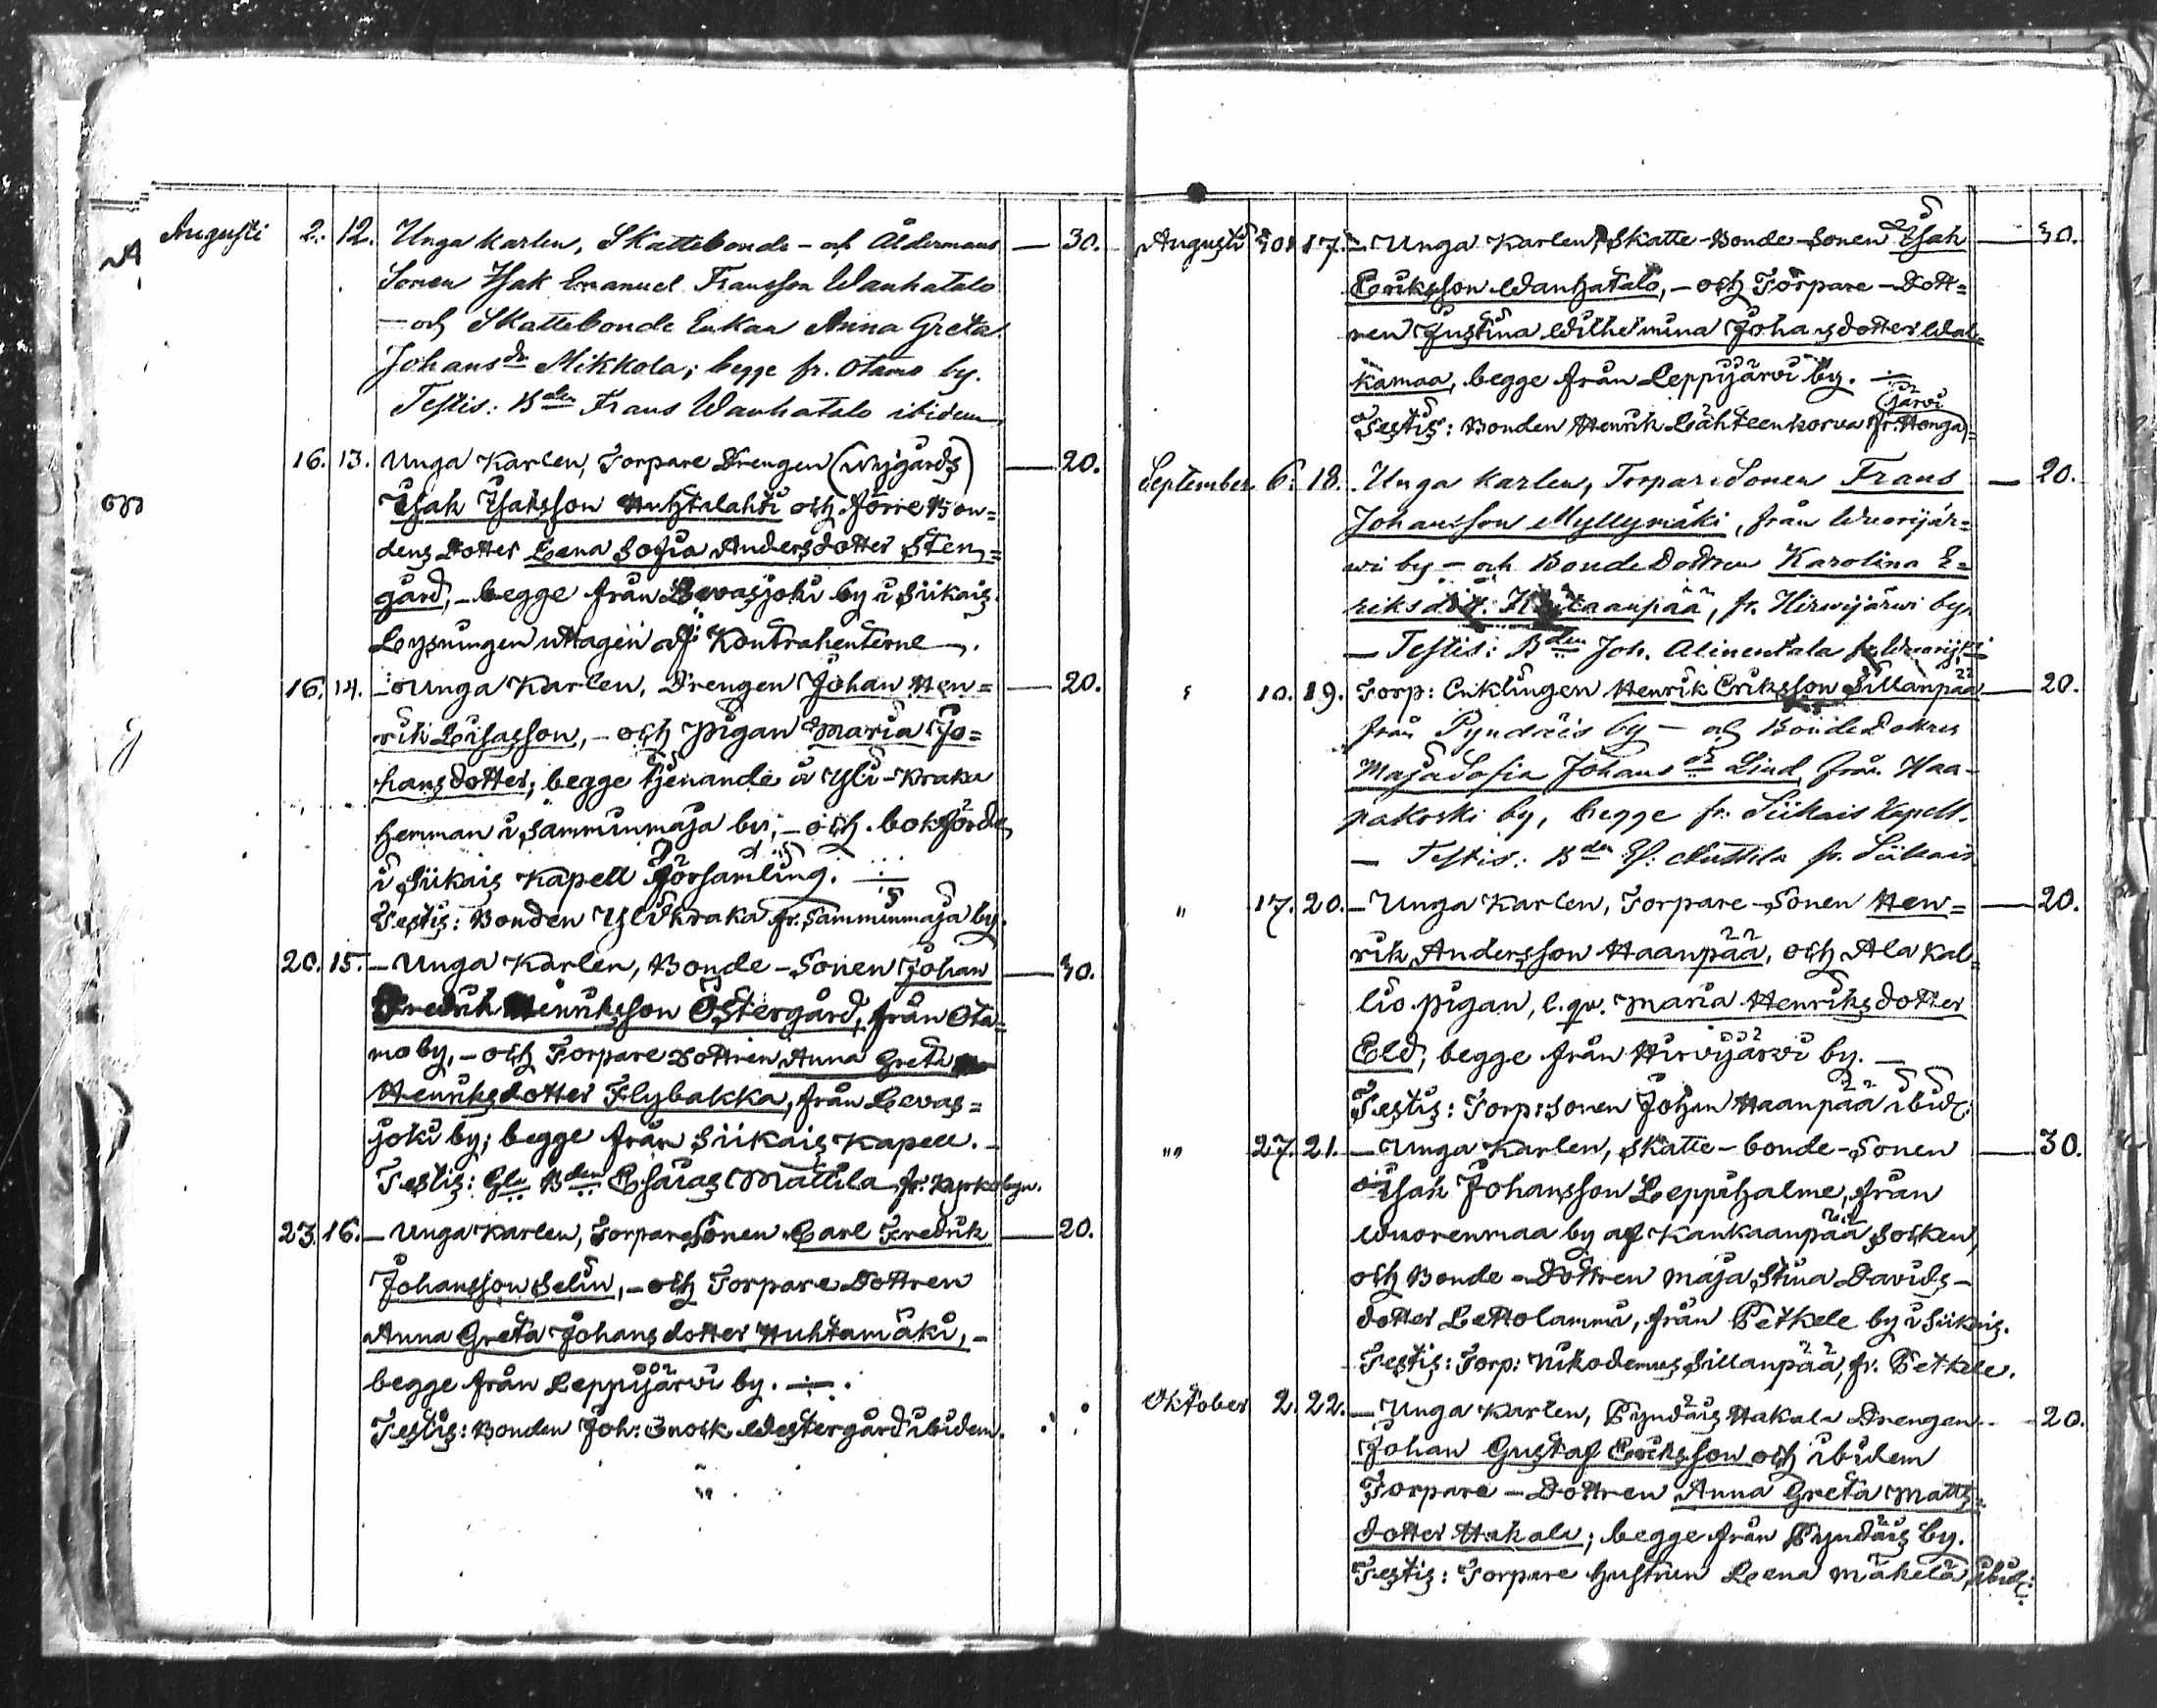 Augusti 2. 12. Unga karlen, Skattebonde- och Åldermans — 30.
Sonen Isak Emanuel Fransson Wanhatalo
— och Skattebonde Enkan Anna Greta
Johansdr Mikkola; begge fr. Otamo by.
Testis: Bden Frans Wanhatalo ibidem
16. 13. Unga Karlen, Torpare Drengen (Nygårds) — 20.
Isak Isaksson Huhtalahti och förre Bon=
dens Dotter Lena Sofia Andersdotter Sten=
gård, – begge från Lewasjoki by i Siikais.
Lysningen uttagen af Kontrahenterne —.
16. 14. – Unga Karlen, Drengen Johan Hen= — 20.
rik Esaiasson, – och pigan Maria Jo=
hansdotter; begge tjenande å Yli-Kraka
hemman i Samminmaja by, – och bokförde
i Siikais Kapell församling. —
Testis: Bonden Ylikraka fr. Samminmaja by.
20. 15. – Unga Karlen, Bonde-Sonen Johan — 30.
Fredrik Henriksson Östergård, från Ota=
mo by, – och Torpare Dottren Anna Greta
Henriksdotter Flybakka, från Lewas=
joki by; begge från Siikais Kapell. –
Testis: Gle Bden Esaias Mattila, fr. Kyrkobyn.
23. 16. – Unga Karlen, Torpare Sonen Carl Fredrik — 20.
Johansson Selin, – och Torpare Dottren
Anna Greta Johansdotter Huhtamäki, –
begge från Leppijärwi by. —
Testis: Bonden Joh: Enock Westergård ibidem.
Augusti 30. 17. – Unga Karlen, Skatte-Bonde-Sonen Isak — 30.
Eriksson Wanhatalo, – och Torpare-Dott=
ren Justina Wilhelmina Johansdotter Wal=
kamaa, begge från Leppijärwi by. —
järwi
Testis: Bonden Henrik Lähteenkorwa fr. Honga=
September 6. 18. Unga karlen, Torpare Sonen Frans — 20.
Johansson Myllymäki, från Wuorijär=
wi by – och Bonde Dottren Karolina E=
riksdott. , fr. Hirwijärwi by
— Testis: Bden Joh. Alinentalo fr.
10. 19. Torp: Enklingen Henrik Eriksson Sillanpää — 20.
från Pyndäis by – och Bonde Dottren
Maja Sofia Johansdr Lind från Haa-
pakoski by, begge fr. Siikais Kapell.
— Testis: Bden Es. Mattila fr. Siikais
" 17. 20. – Unga Karlen, Torpare-Sonen Hen= — 20.
rik Andersson Haanpää, och Ala Kal=
lio pigan, l. qv. Maria Henriksdotter
Eld; begge från Hirwijärwi by. —
Testis: Torp: Sonen Johan Haanpää ibid:
"" 27. 21. – Unga Karlen, Skatte-bonde-Sonen — 30.
Isak Johansson Leppihalme, från
Wuorenmaa by af Kankaanpää Socken,
och Bonde-Dottren Maja Stina Davids-
dotter Lettolammi, från Petkele by i Siikais.
Testis: Torp: Nikodemus Sillanpää, fr. Petkele.
Oktober 2. 22. – Unga Karlen, Pyndäis Hakala Drengen – 20.
Johan Gustaf Eriksson och ibidem
Torpare-Dottren Anna Greta Matts=
dotter Hakala; begge från Pyndäis by.
Testis: Torpare hustrun Leena Mäkelä, ibid: